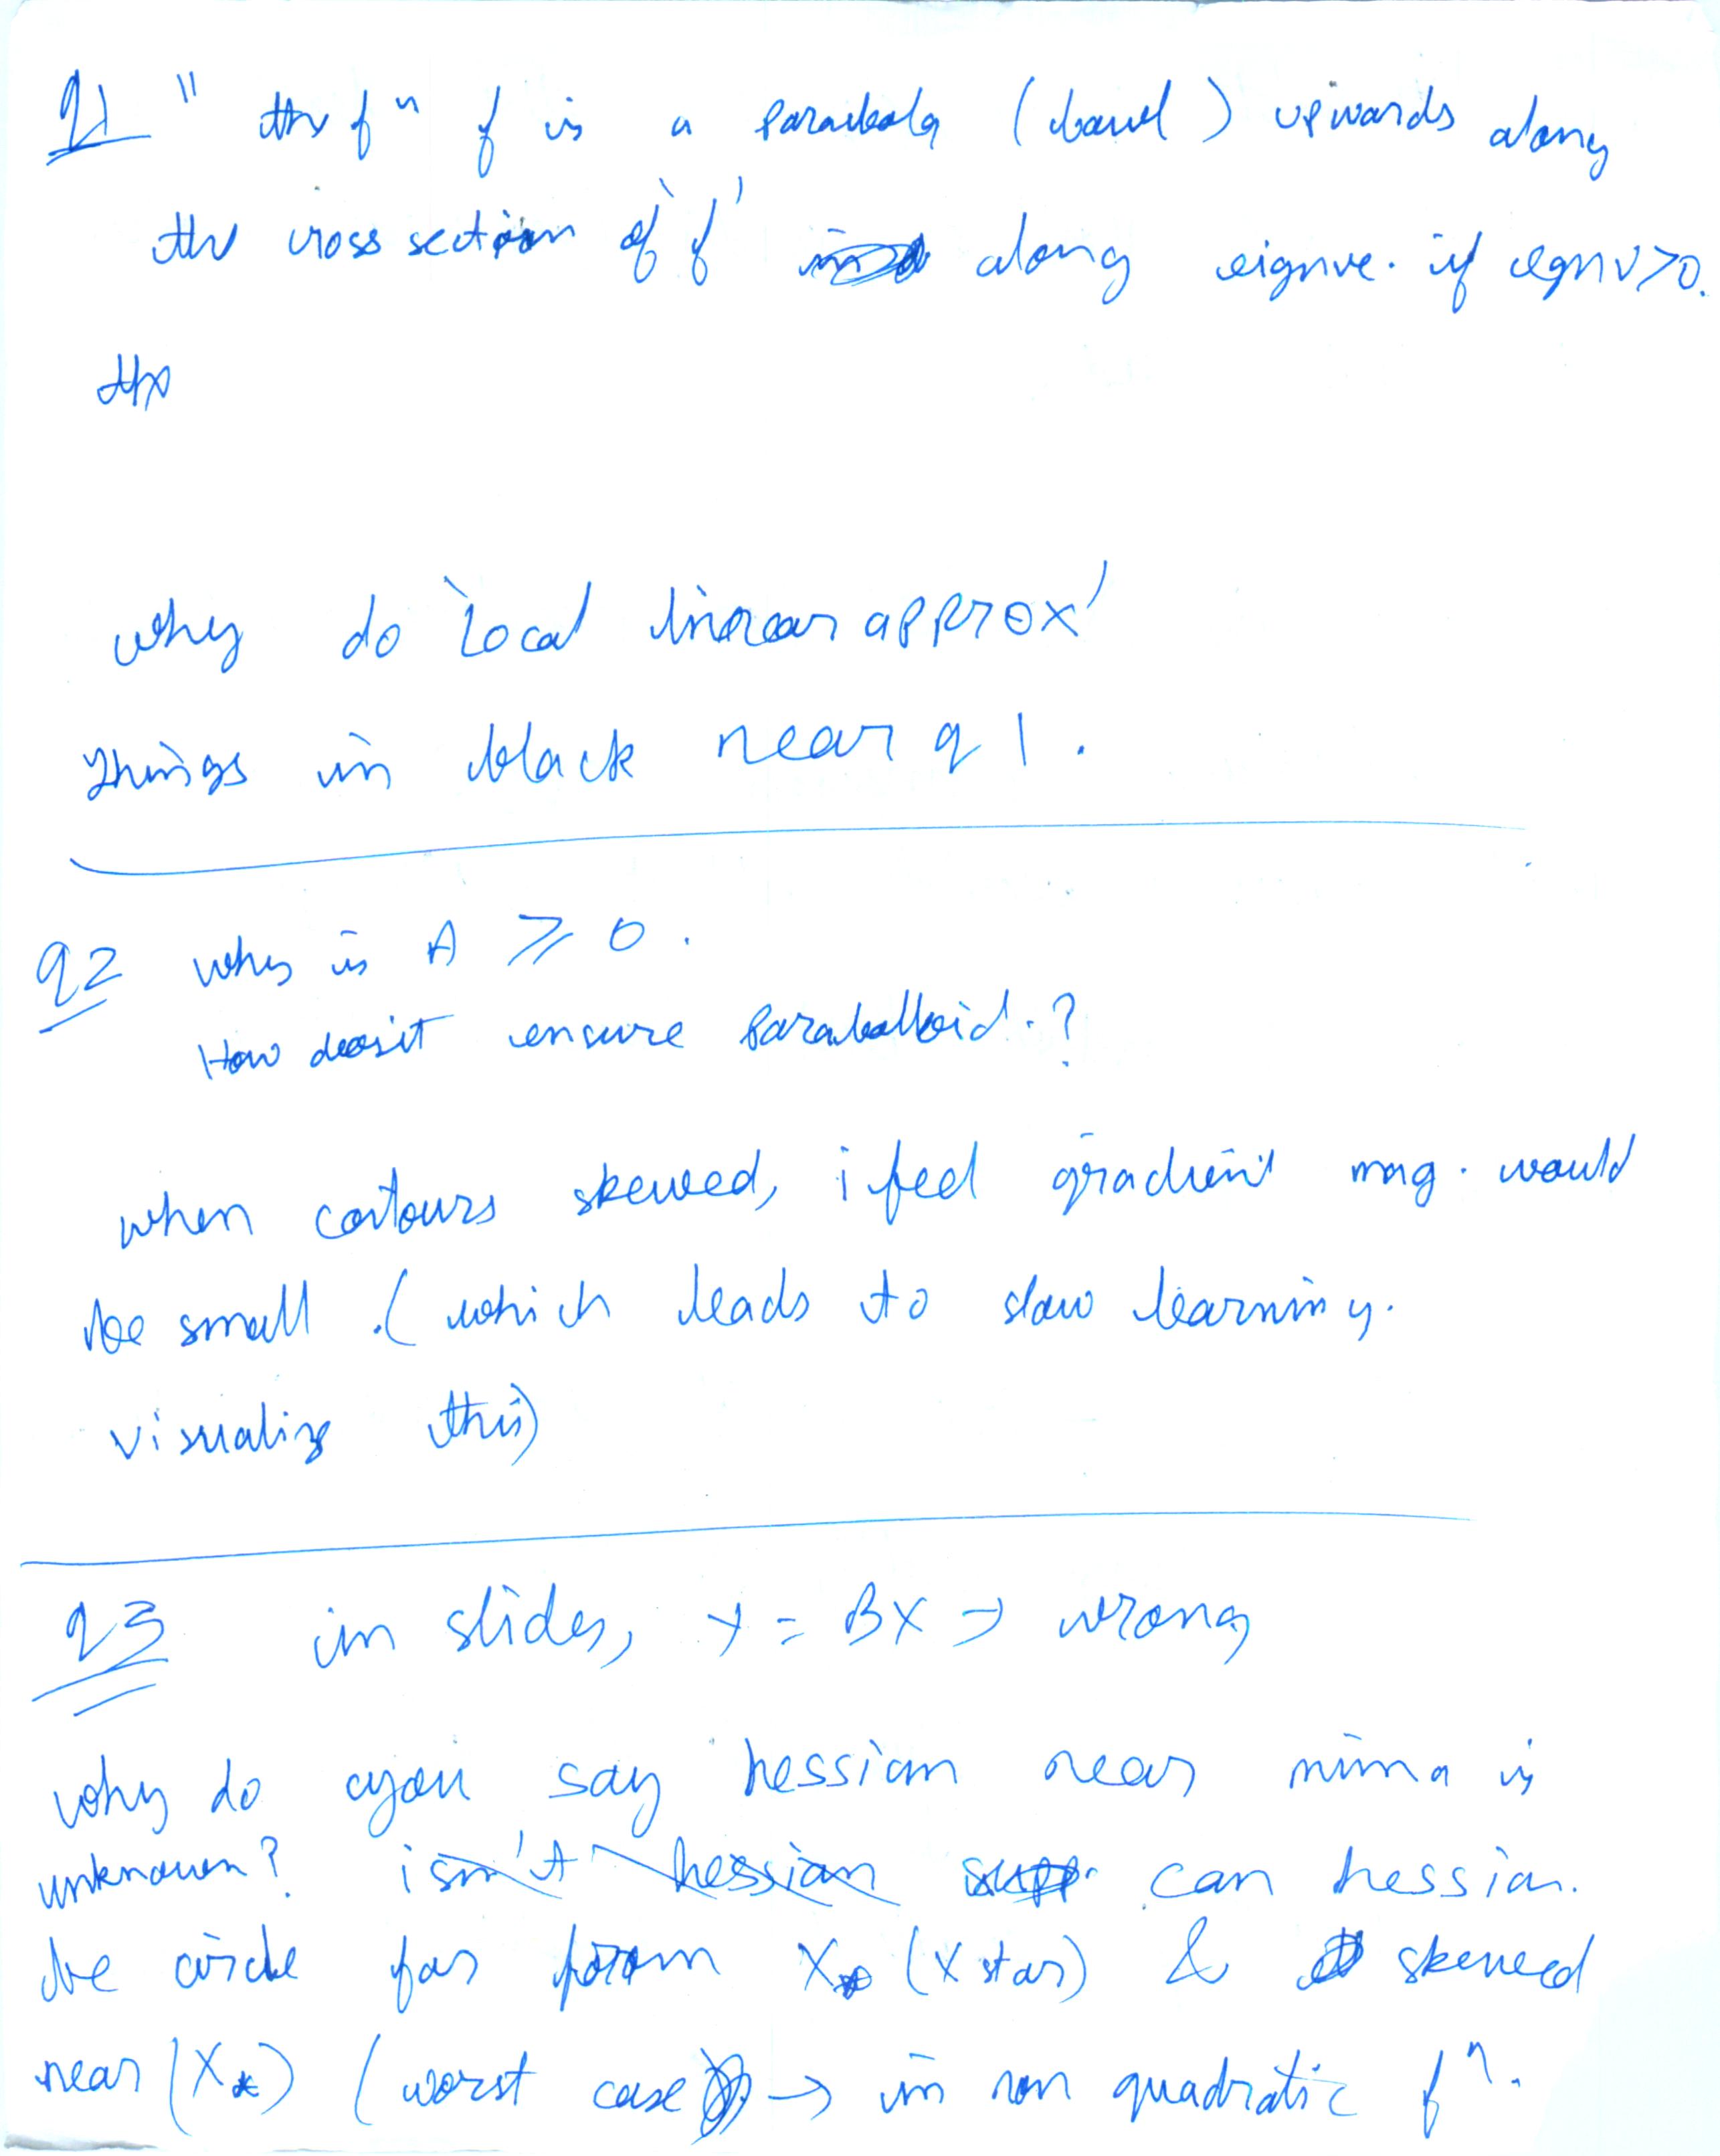 Q1 " the fⁿ f is a parabola (bowl) upwards along
the cross section of 'f' along eignve. if egnv>0.
the
why do 'local linear approx'
things in black near q1.
q2 why is A ⩾ 0.
How does it ensure paraboloid.?
when contours skewed, i feel gradient mag. would
be small. (which leads to slow learning.
visualize this)
q3 in slides, y = Bx → wrong
why do you say hessian near mima is
unknown? isn't hessian can hessian.
be circle far from x* (x star) & skewed
near (x*) (worst case → in non quadratic fⁿ.